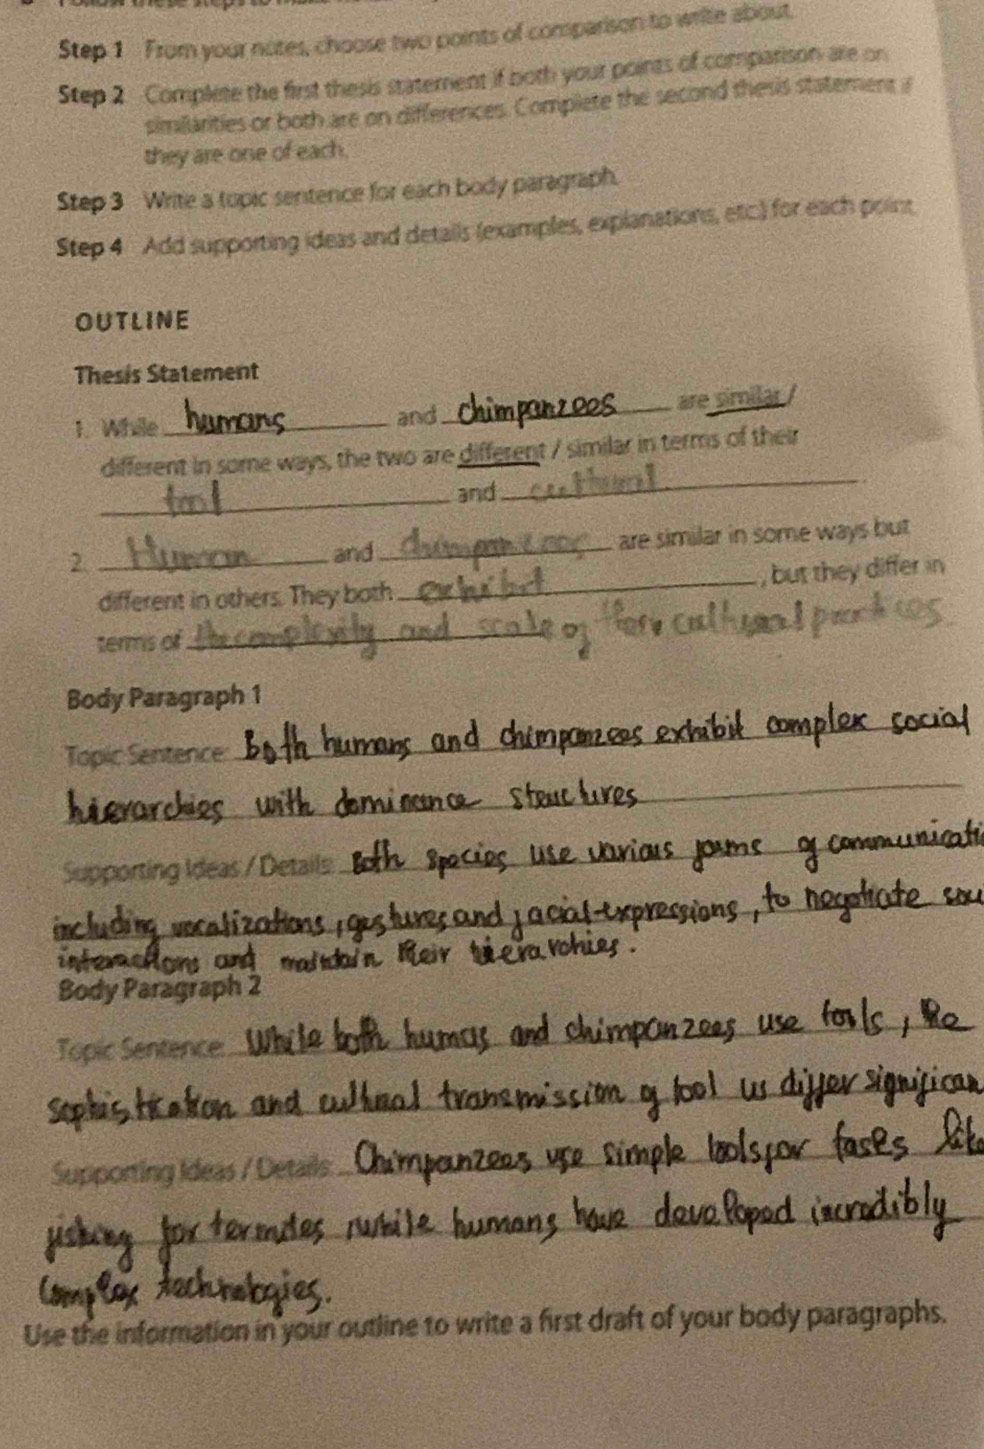 Step 1 From your notes, choose two points of comparison to write about.
Step 2 Complete the first thesis statement if both your points of comparison are on
similarities or both are on differences. Complete the second thesis statement if
they are one of each.
Step 3 Write a topic sentence for each body paragraph.
Step 4 Add supporting ideas and details (examples, explanations, etc.) for each point.
OUTLINE
Thesis Statement
1. While humans and chimpanzees are similar /
different in some ways, the two are different / similar in terms of their
tool and cultural.
2. Human and chimpanzees are similar in some ways but
different in others. They both exhibit, but they differ in
terms of the complexity and scale of their cultural practices
Body Paragraph 1
Topic Sentence: Both humans and chimpanzees exhibit complex social
hierarchies with dominance structures
Supporting Ideas / Details: Both species use various forms of communicati
including vocalizations, gestures and facial expressions, to negotiate
interactions and maintain their hierarchies.
Body Paragraph 2
Topic Sentence: While both humas and chimpanzees use tools, the
sophistication and cultural transmission of tool us differ significan
Supporting Ideas / Details: Chimpanzees use simple tools for tasks like
fishing for termites, while humans have developed incredibly
complex technologies.
Use the information in your outline to write a first draft of your body paragraphs.